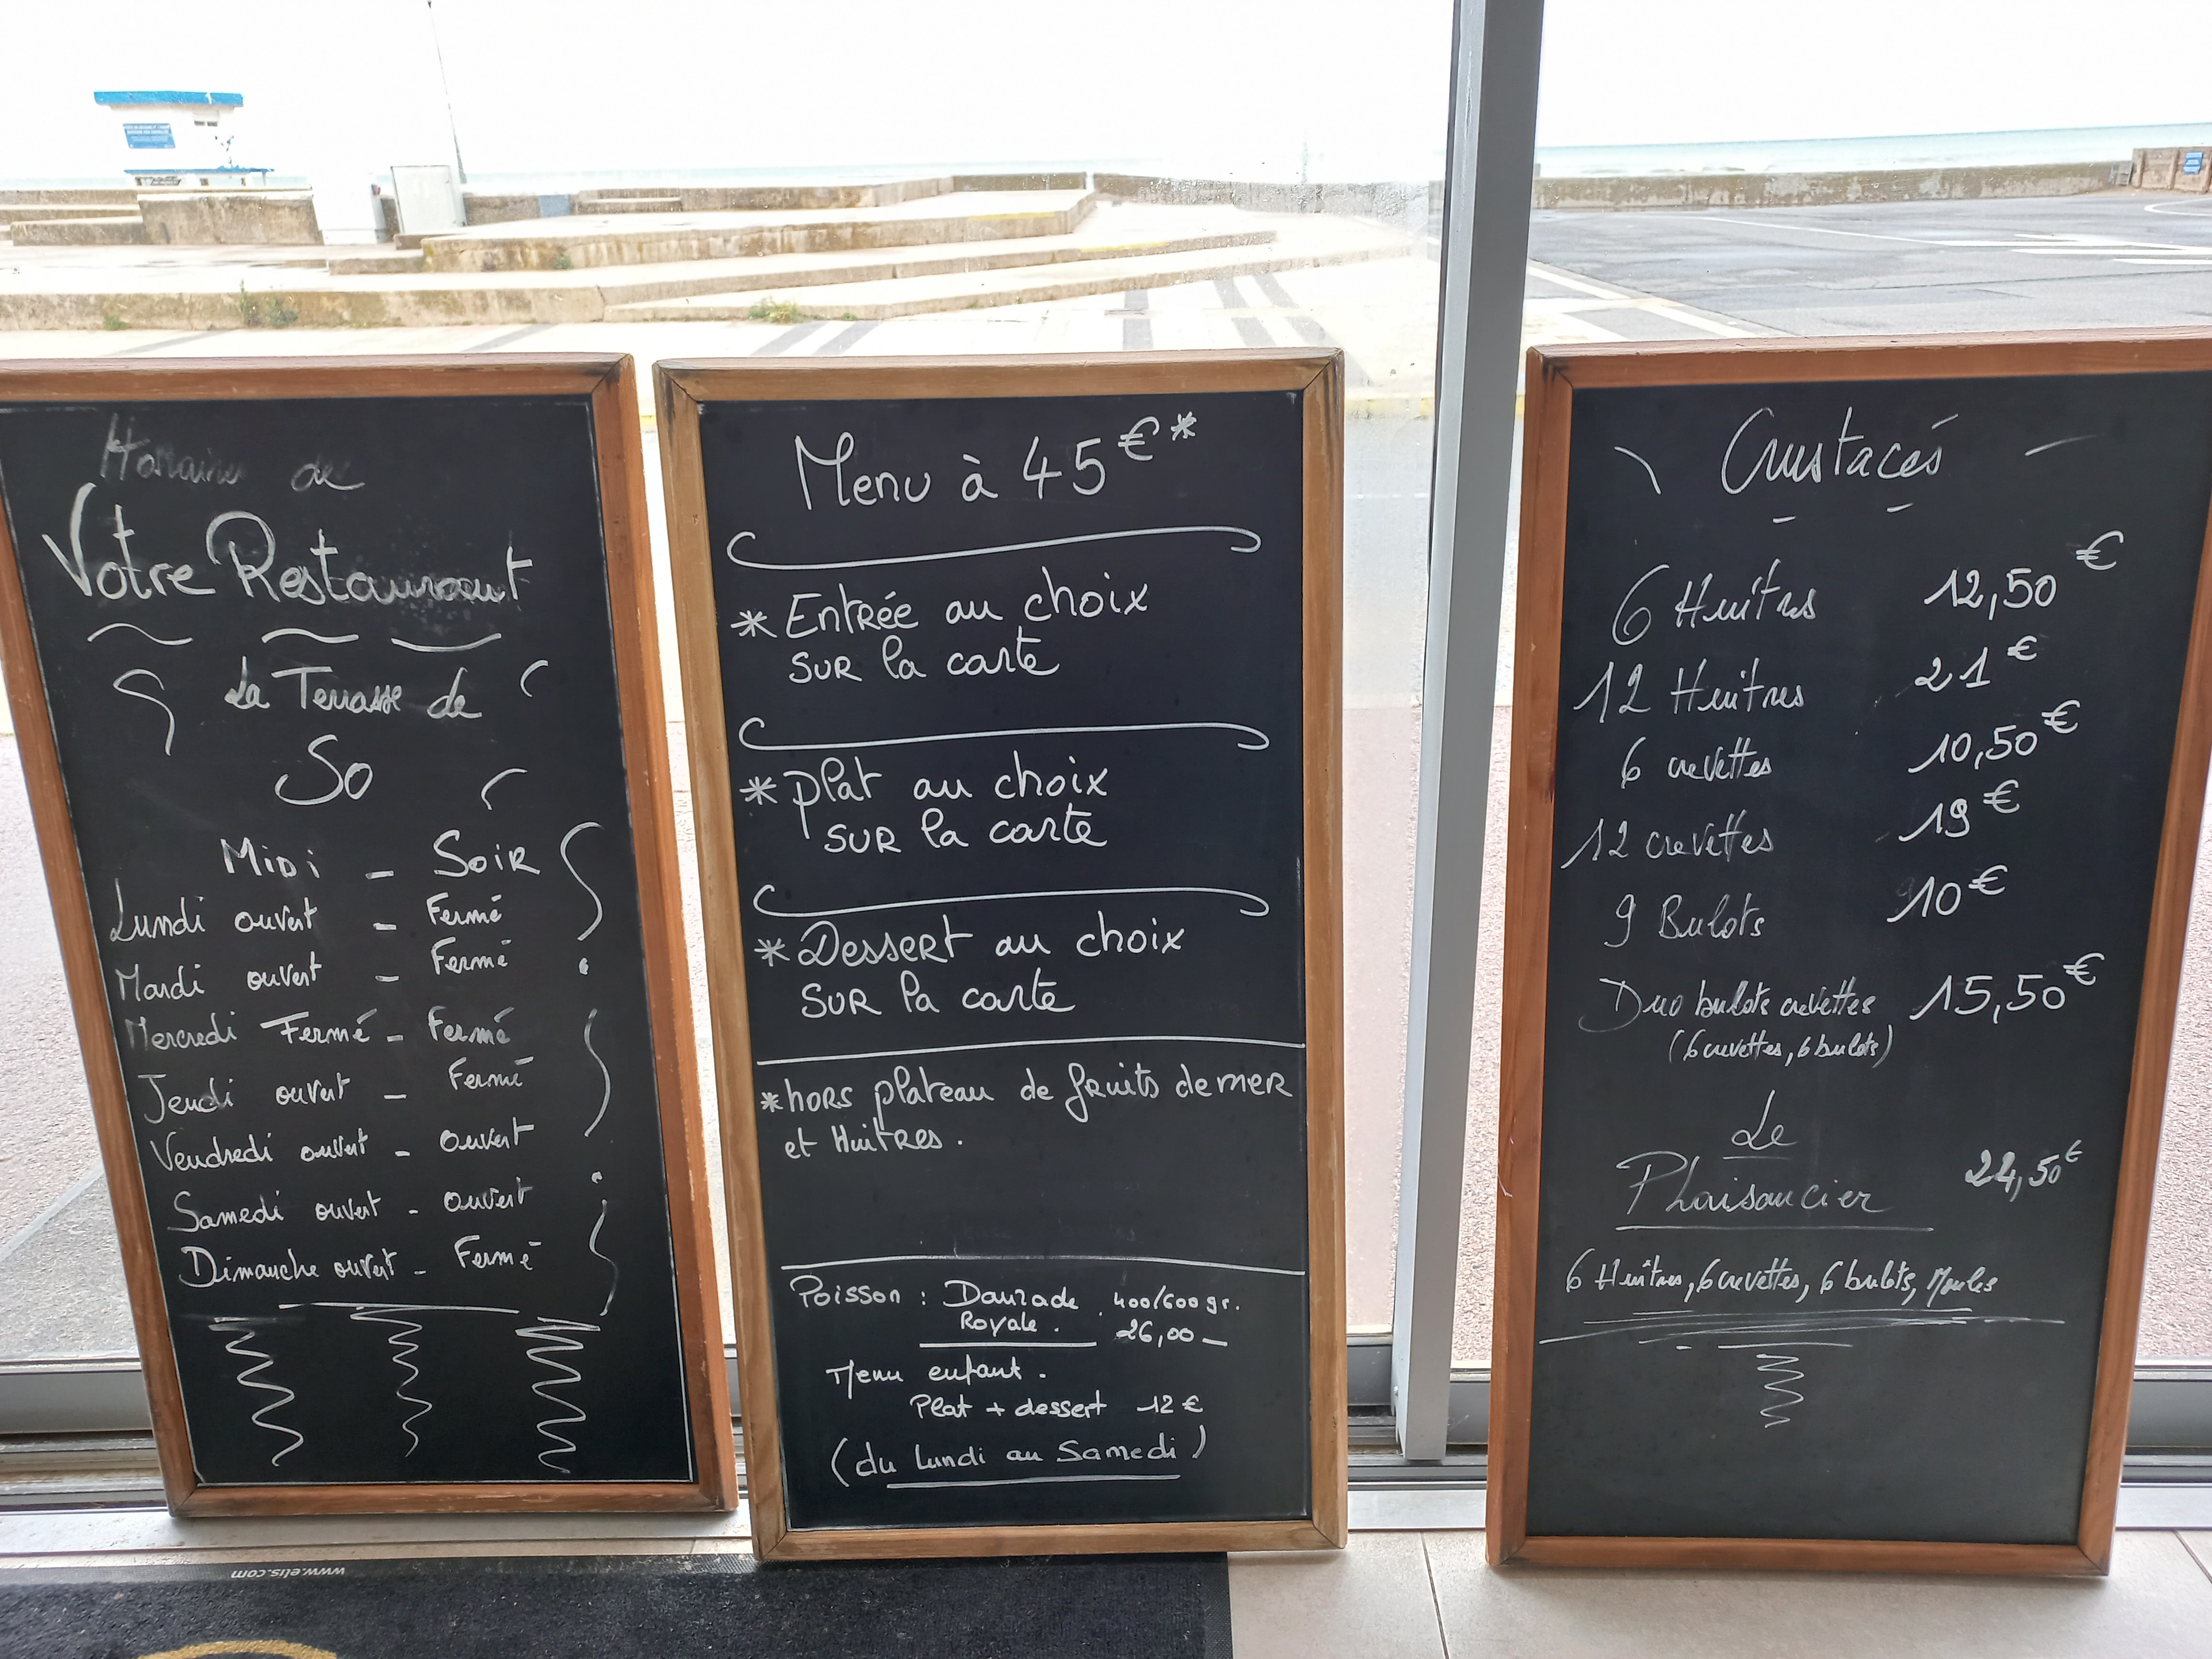 Horaires de
Votre Restaurant
La Terrasse de
So
Midi - Soir
Lundi ouvert - Fermé
Mardi ouvert - Fermé
Mercredi Fermé - Fermé
Jeudi ouvert - Fermé
Vendredi ouvert - ouvert
Samedi ouvert - ouvert
Dimanche ouvert - Fermé
Menu à 45€*
* Entrée au choix
sur la carte
* plat au choix
sur la carte
* Dessert au choix
sur la carte
* hors plateau de fruits de mer
et Huitres.
Poisson : Daurade 400/600 gr.
Royale. 26,00
Menu enfant.
Plat + dessert 12 €
(du Lundi au Samedi)
Crustacés
6 Huîtres 12,50 €
12 Huitres 21 €
6 crevettes 10,50 €
12 crevettes 19 €
9 Bulots 10 €
Duo bulots crevettes 15,50 €
(6 crevettes, 6 bulots)
Le
Plaisancier 24,50 €
6 Huîtres, 6 crevettes, 6 bulots, Moules
www.elis.com